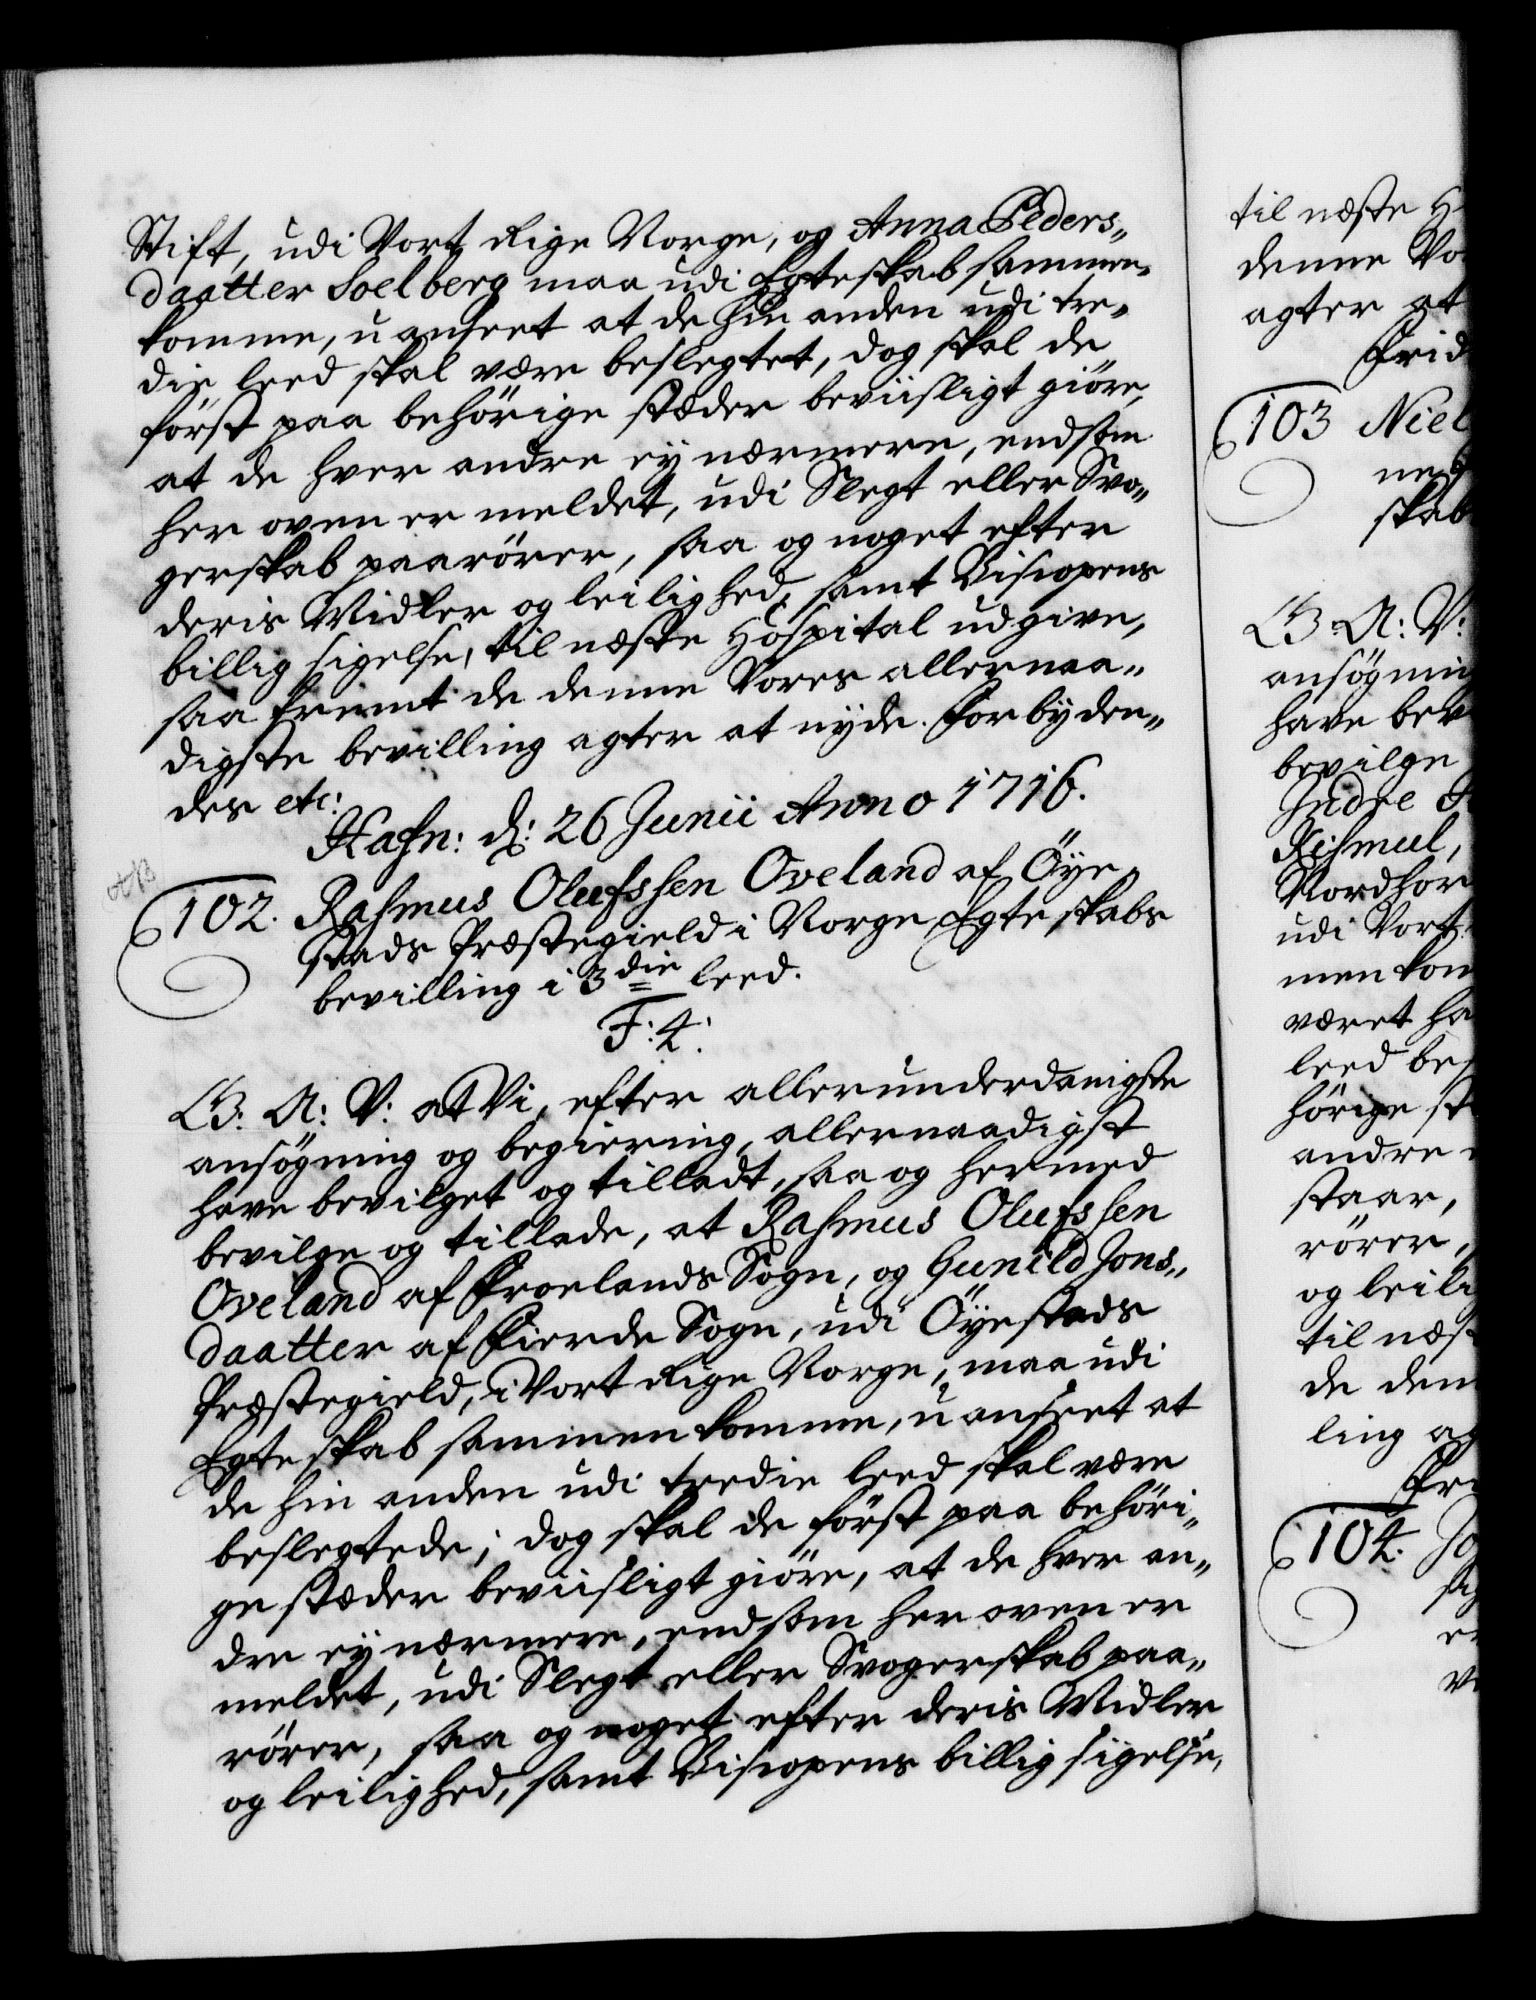 Stift, udi Vort Rige Norge, og Anna Peders„
daatter Soelberg maa udi Egteskab sammen„
komme, uanseet at de hin anden udi tre„
die leed skal være beslegtet, dog skal de
först paa behörige stæder beviisligt giöre,
at de hver andre ey nærmere, end som
her oven er meldet, udi Slegt eller Svo„
gerskab paarörer, saa og noget efter
deris Midler og leilighed, samt Bisopens
billig sigelse, til næste Hospital udgive,
saa fremt de denne Vores allernaa„
digste bevilling agter at nyde. Forbyden„
des etc:
Hafn: d: 26 Junii Anno 1716.
102. Rasmus Olufssen Oveland af Öye„
stads Præstegield i Norge Egteskabs
bevilling i 3die leed.
F: 4:
G: A: V: at Vi, efter allerunderdanigste
ansögning og begiering, allernaadigst
have bevilget og tilladt, saa og hermed
bevilge og tillade, at Rasmus Olufssen
Oveland af Froelands Sogn, og Gunild Jons„
daatter af Fierde Sogn, udi Öyestads
Præstegield, i Vort Rige Norge, maa udi
Egteskab sammenkomme, uanseet at
de hin anden udi tredie leed skal være
beslegtede; dog skal de först paa behöri„
ge stæder beviisligt giöre, at de hver an„
dre ey nærmere, end som her oven er
meldet, udi Slegt eller Svogerskab paa„
rörer, saa og noget efter deris Midler
og leilighed, samt Bisopens billig sigelse,
til næste
denne
agter at
103
skab
G: A: V:
ansögning
have
bevilge
Indre
Kismul,
udi Vort
været
leed
andre
staar,
rörer,
og
de
ling
104.